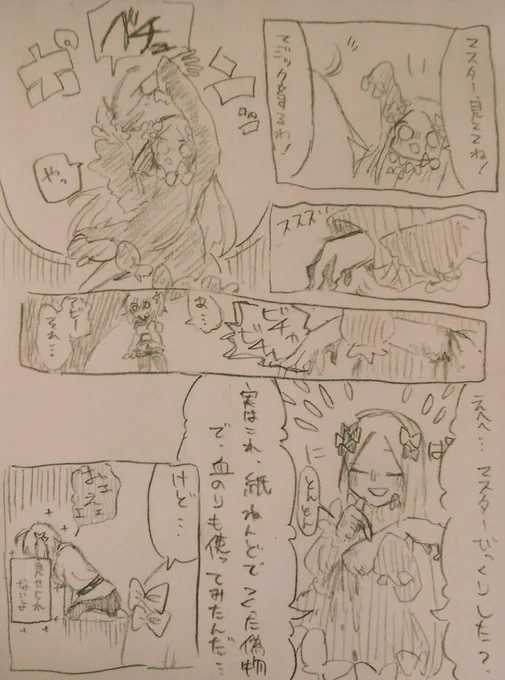 マスター、見ててね!
マジックをするわ!
ズズズ
ベチュ
ポ
やっ
ビチッ
あ…
アビー
それ…
えへへ…マスターびっくりした?
ば
とんとん
実はこれ、紙ねんどでつくった偽物
で、血のりも使ってみたんだ…
けど…
おえェェ
見せられ
ないよ